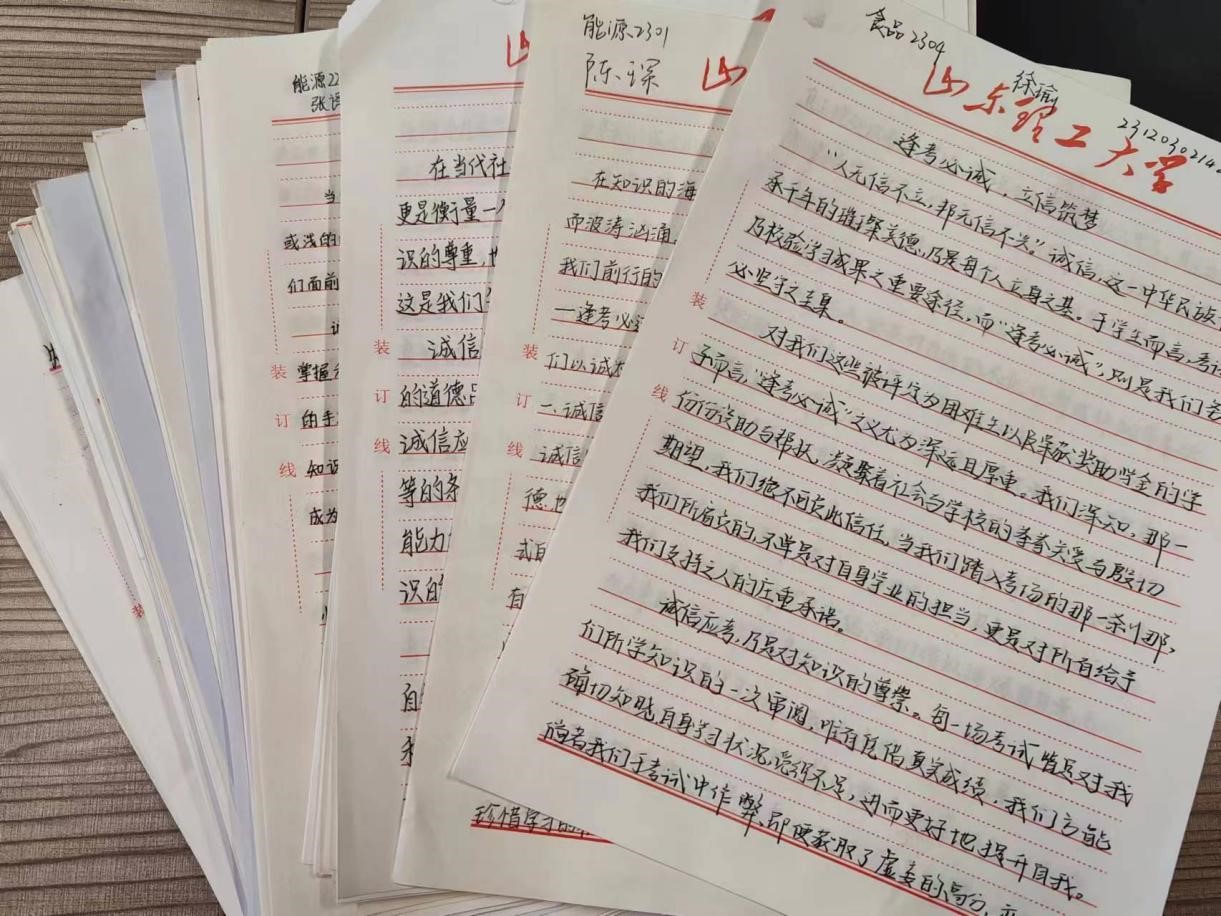 食品2304
徐瑜
2312030214
山东理工大学
逢考必诚，立信筑梦
"人无信不立，邦无信不兴。"诚信，这一中华民族
承千年的璀璨美德，乃是每个人立身之基。于学生而言，考试
乃校验学习成果之重要途径，而"逢考必诚"，则是我们
必坚守之圭臬。
对我们这些被评定为困难生以及荣获奖助学金的学
子而言，"逢考必诚"之义尤为深远且厚重。我们深知，那一
份份资助与帮扶，凝聚着社会与学校的拳拳关爱与殷切
期望，我们绝不可负此信任，当我们踏入考场的那一刹那，
我们所肩负的，不单是对自身学业的担当，更是对所有给予
我们支持之人的庄重承诺。
诚信应考，乃是对知识的尊崇。每一场考试皆是对我
们所学知识的一次审阅，唯有凭借真实成绩，我们方能
确切知晓自身学习状况，觉弥不足，进而更好地提升自我。
倘若我们于考试中作弊，即便获取了虚妄的高分，
装
订
线
能源2301
陈琛
山
在知识的海
而波涛汹涌，
我们前行的
一逢考必
们以诚
二、诚信
诚信
德，也
式
有
珍惜学习的
装
订
线
山
在当代社
更是衡量一个
识的尊重，也
这是我们
诚信
的道德
诚信应
等的条
能力
识的
自
装
订
线
能源22
张
当
或浅的
们面前
掌握
的手
知识
成为
装
订
线
装